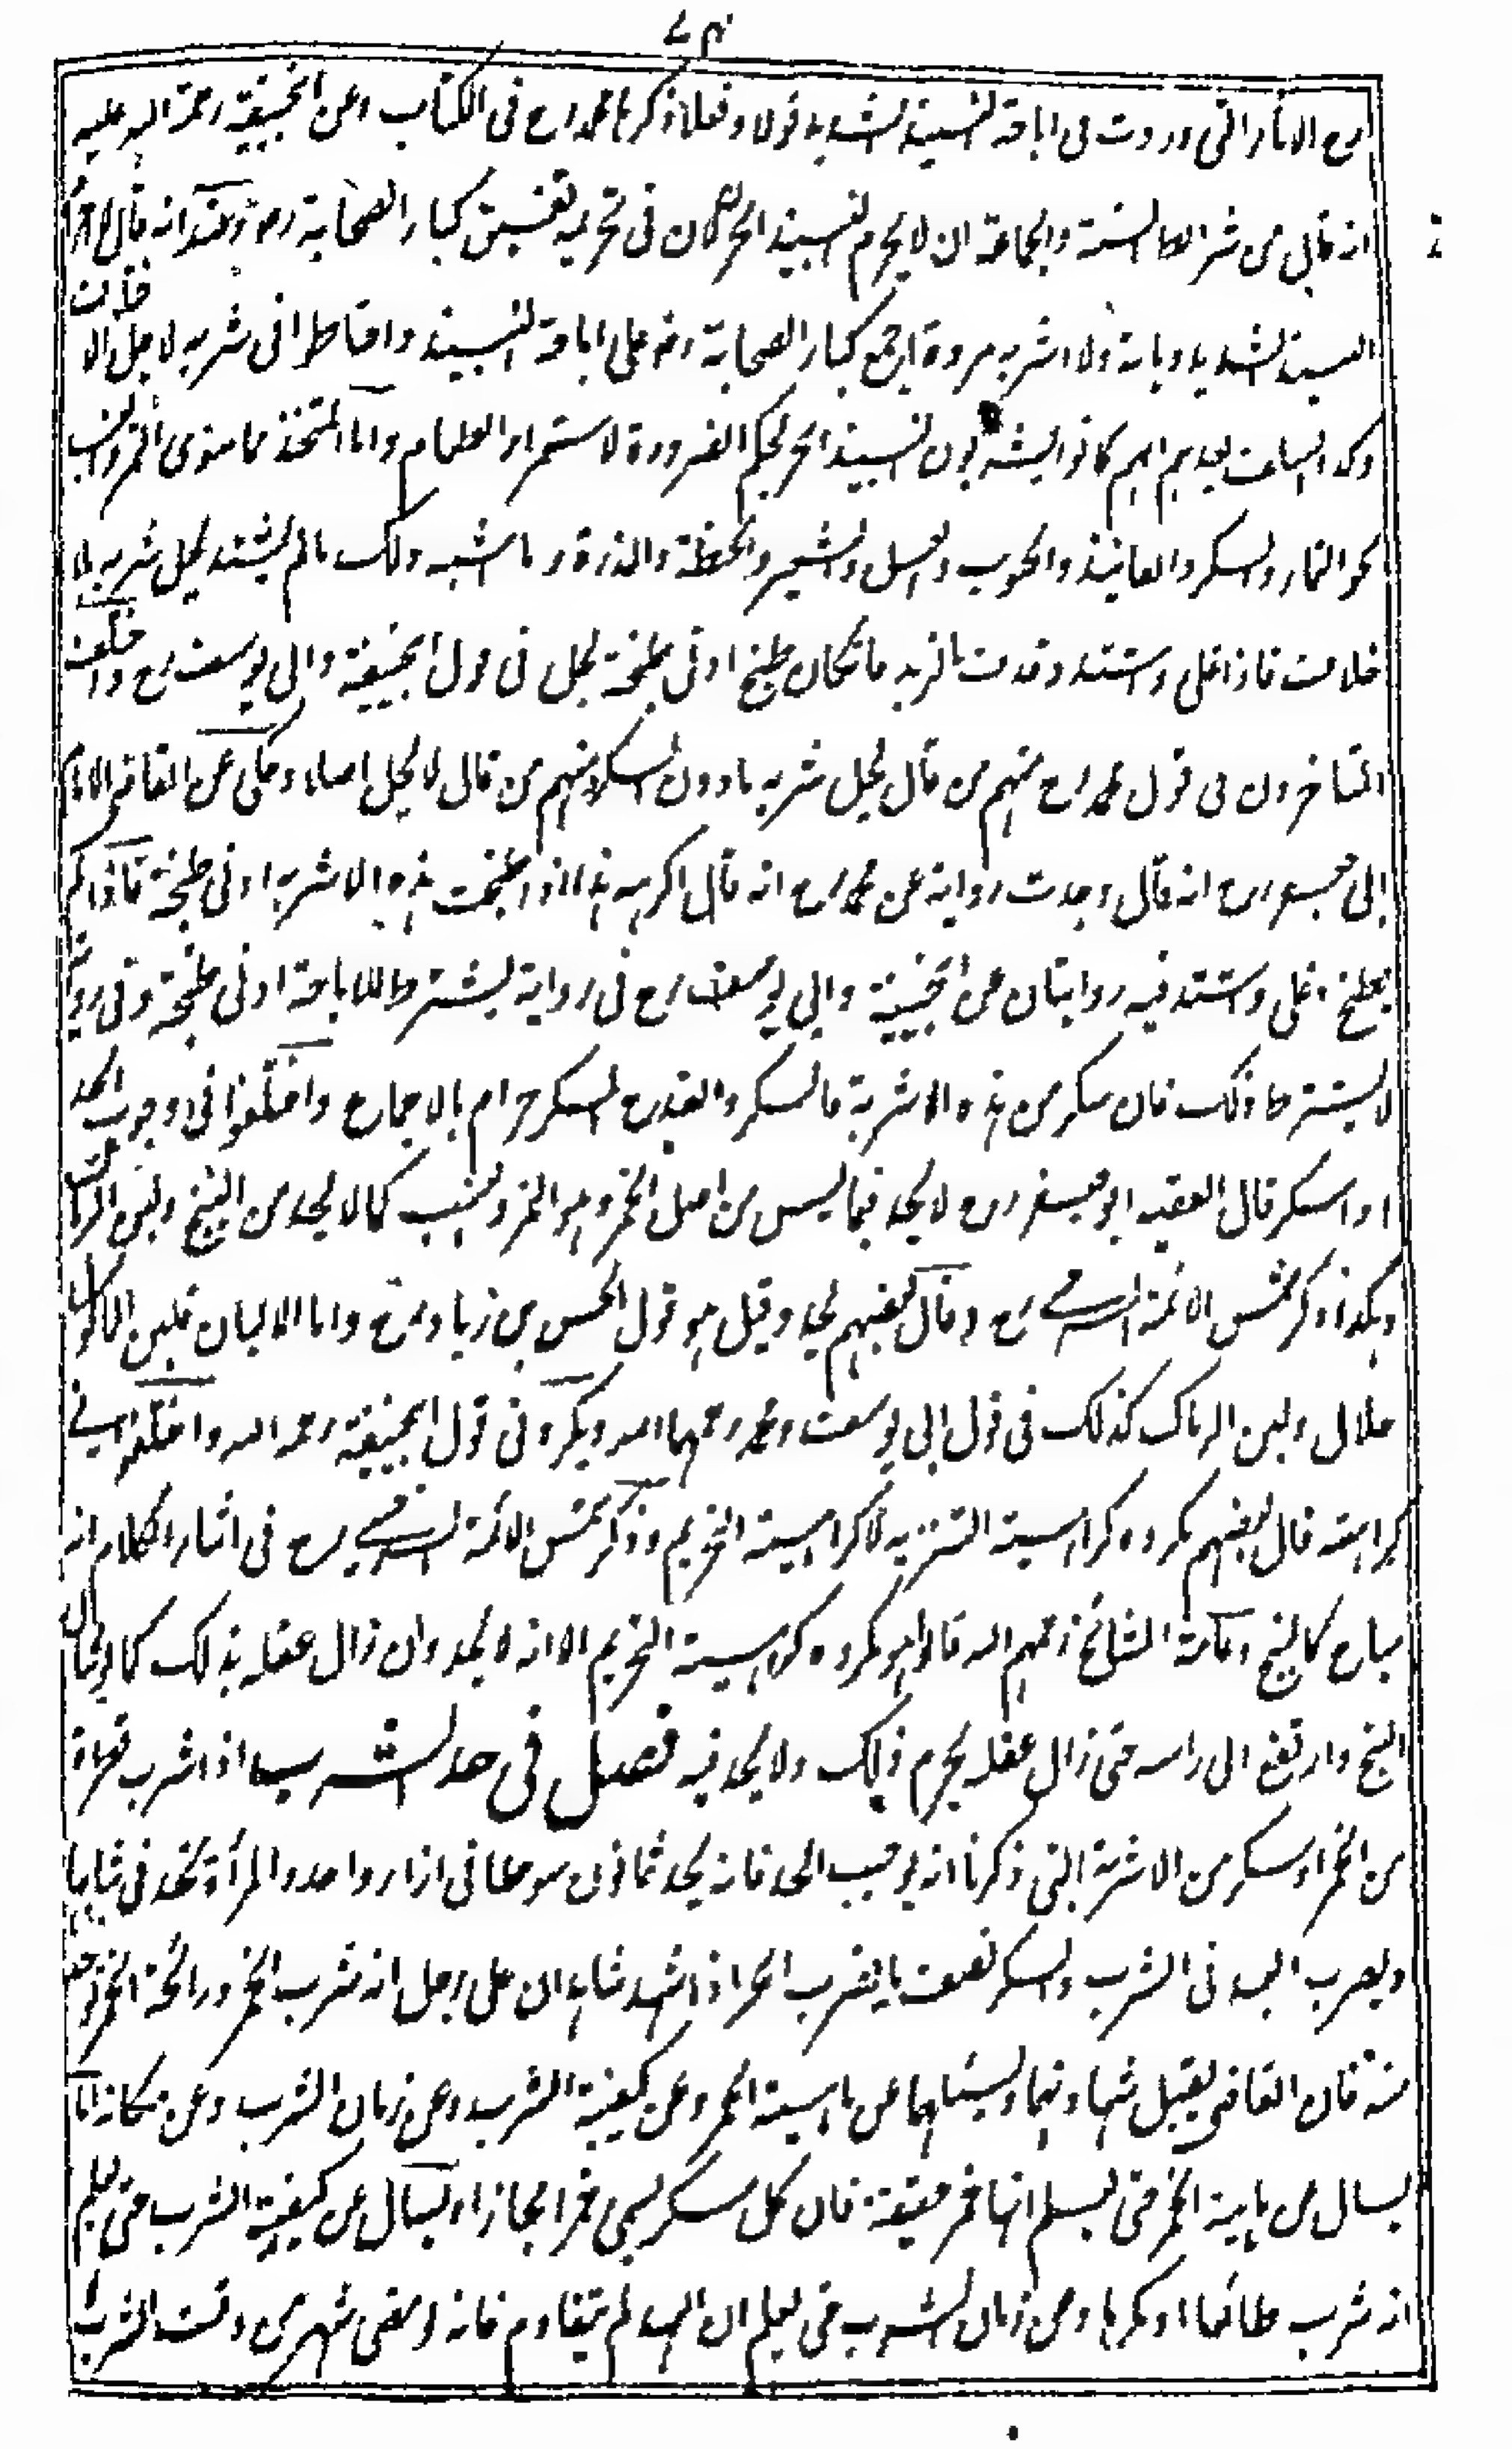 مع الآثار التى وردت فى اباحة النبيذ الشديد قولا وفعلا ذكرها محمد رح فى الكتاب وعن ابيحنيفة رحمة الله عليه
انه قال من شرائط السنة والجماعة ان لا يحرم النبيذ الجر لان فى تحريمه تفسيق كبار الصحابة رض وعنه انه قال لا احرم
النبيذ الشديد ديانة ولا اشربه مروة اجمع كبار الصحابة رض على اباحة النبيذ واحتاطوا فى شربه لاجل الاختلاف
وكذا السلف بعدهم انهم كانوا يشربون النبيذ الجر لحكم الضرورة لاستمراء الطعام واما المتخذ مما سوى التمر والزبيب
نحو الثمار والسكر والفانيذ والحبوب والعسل والشعير والحنطة والذرة وما اشبه ذلك ما لم يشتد يحل شربه بلا
خلاف فاذا غلى واشتد وقذف بالزبد فان كان طبخ ادنى طبخة يحل فى قول ابيحنيفة وابى يوسف رح واختلف
المتاخرون فى قول محمد رح منهم من قال يحل شربه ما دون السكر ومنهم من قال لا يحل اصلا وحكى عن القاضى الامام
ابى جعفر رح انه قال وجدت رواية عن محمد رح انه قال اكره هذا اذا طبخت هذه الاشربة ادنى طبخة فاذا لم
يطبخ وغلى واشتد فيه روايتان عن ابيحنيفة وابى يوسف رح فى رواية يشترط للاباحة ادنى طبخة وفى رواية
لا يشترط ذلك فان سكر من هذه الاشربة فالسكر والقدح المسكر حرام بالاجماع واختلفوا فى وجوب الحد
اذا سكر قال الفقيه ابو جعفر رح لا يحد فيما ليس من اصل الخمر وهو التمر والزبيب كما لا يحد من البنج ولبن الرماك
وهكذا ذكر شمس الائمة السرخسى رح وقال بعضهم يحد وقيل هو قول الحسن بن زياد رح واما الالبان فلبن الماكول
حلال ولبن الرماك كذلك فى قول ابى يوسف ومحمد رحمهما الله ويكره فى قول ابيحنيفة رحمه الله واختلفوا فى
كراهته قال بعضهم مكروه كراهية التنزيه لا كراهية التحريم وذكر شمس الائمة السرخسى رح فى اثناء الكلام انه
مباح كالبنج وعامة المشائخ رحمهم الله قالوا هو مكروه كراهية التحريم الا انه لا يحد وان زال عقله بذلك كما لو تناول
البنج وارتفع الى راسه حتى زال عقله يحرم ذلك ولا يحد فيه فصل فى حد الشرب اذا شرب قطرة
من الخمر او سكر من الاشربة التى ذكرنا انه يوجب الحد فانه يحد ثمانون سوطا فى ازار واحد والمرأة تحد فى ثيابها
ويضرب العبد فى الشرب والسكر نصف ما يضرب الحر اذا شهد شاهدان على رجل انه شرب الخمر ورائحة الخمر توجد
منه فان القاضى يقبل شهادتهما ويسئلهما عن ماهية الخمر وعن كيفية الشرب وعن زمان الشرب وعن مكانه اما
يسال عن ماهية الخمر حتى يعلم انها خمر حقيقة فان كل مسكر يسمى خمرا مجازا ويسال عن كيفية الشرب حتى يعلم
انه شرب طائعا او مكرها وعن زمان الشرب حتى يعلم ان العهد لم يتقادم فانه لو مضى شهر من وقت الشرب